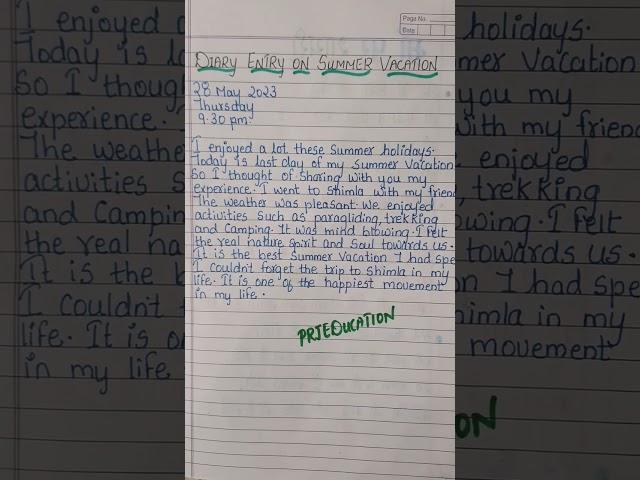 Page No.
Date
DIARY ENTRY ON SUMMER VACATION
28 May 2023
Thursday
9:30 pm.
I enjoyed a lot these summer holidays.
Today is last day of my summer vacation
So I thought of sharing with you my
experience. I went to Shimla with my frien
The weather was pleasant. We enjoyed
activities such as paragliding, trekking
and camping. It was mind blowing. I felt
the real nature spirit and soul towards us.
It is the best summer vacation I had spe
I couldn't forget the trip to Shimla in my
life. It is one of the happiest movement
in my life.
PRIEDUCATION